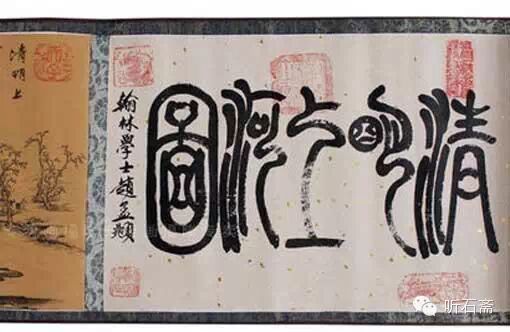 清明上河圖
翰林學士趙孟頫
清明上
听石斋